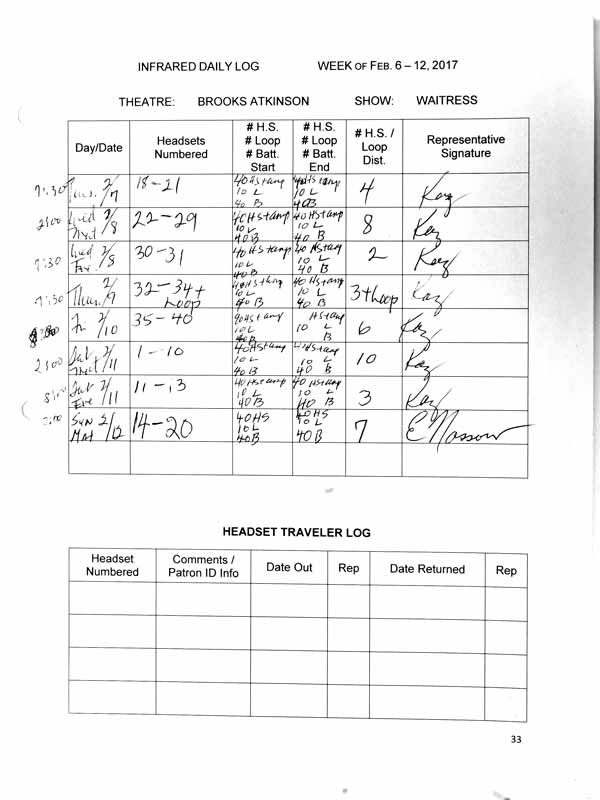 INFRARED DAILY LOG WEEK OF FEB. 6 – 12, 2017
THEATRE: BROOKS ATKINSON SHOW: WAITRESS
Day/Date Headsets Numbered # H.S. # Loop # Batt. Start # H.S. # Loop # Batt. End # H.S. / Loop Dist. Representative Signature
7:30 Tues. 2/7 18-21 40 HStamp 10 L 40 B 40 HStamp 10 L 40B 4 Kay
2:00 Wed Mat 2/8 22-29 40 HStamp 10 L 40 B 40 HStamp 10 L 40 B 8 Kay
7:30 Wed Eve. 2/8 30-31 40 HStamp 10 L 40 B 40 HStamp 10 L 40 B 2 Kay
7:30 Thur. 2/9 32-34+ Loop 40 HStamp 10 L 40 B 40 HStamp 10 L 40 B 3+Loop Kay
Fri 2/10 35-40 40 HStamp 10 L 40 B HStamp 10 L B 6 Kay
2:00 Sat Mat 2/11 1-10 40 HStamp 10 L 40 B 40 HStamp 10 L 40 B 10 Kay
8:00 Sat Eve 2/11 11-13 40 HStamp 10 L 40 B 40 HStamp 10 L 40 B 3 Kay
Sun Mat 2/12 14-20 40 HS 10 L 40 B 40 HS 10 L 40 B 7 E Nassour
HEADSET TRAVELER LOG
Headset Numbered Comments / Patron ID Info Date Out Rep Date Returned Rep
33